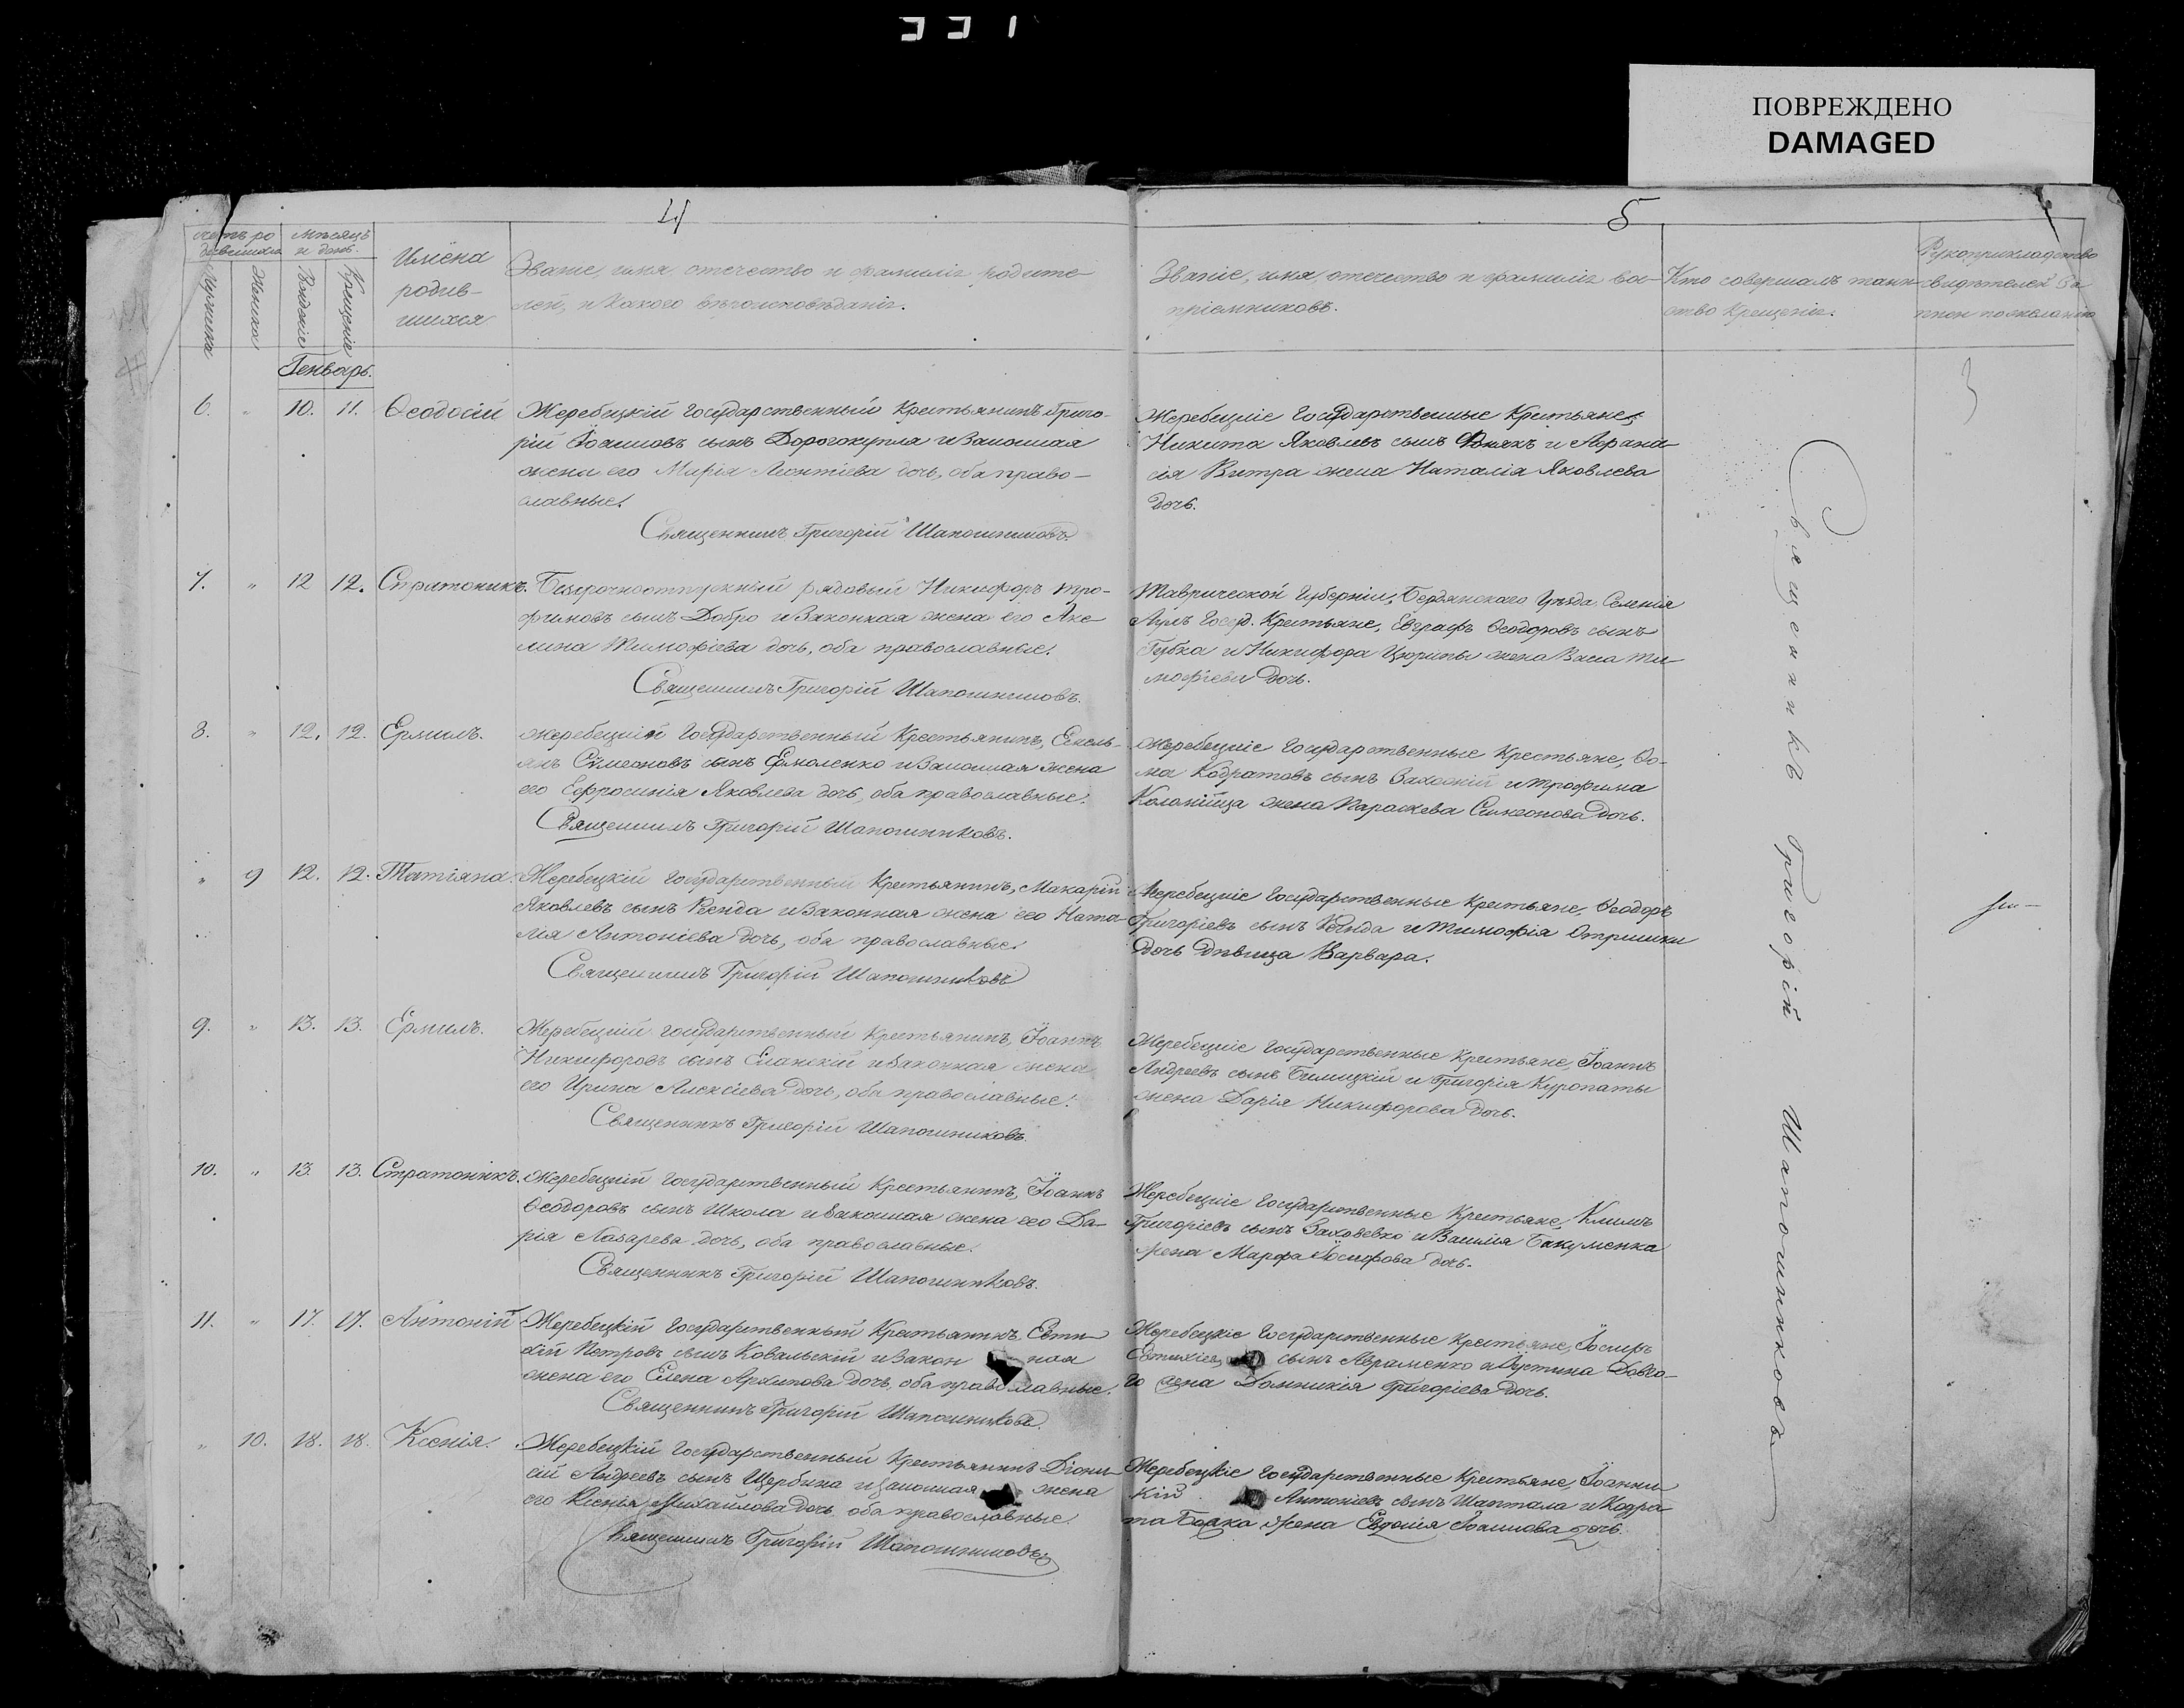 331
ПОВРЕЖДЕНО
DAMAGED
4
5
Счетъ родившихся
Мѣсяцъ и день.
Мужеска
Женска
Рожденіе
Крещеніе
Имена
родив-
шихся
Званіе, имя, отечество и фамилія родите-
лей, и какого вѣроисповѣданія.
Званіе, имя, отечество и фамилія вос-
пріемниковъ.
Кто совершалъ таин-
ство крещенія.
Рукоприкладство
свидѣтелей за-
писи по желанію
Генварь.
3
6. " 10. 11. Ѳеодосій
Жеребецкій государственный крестьянинъ Григо-
рій Іоанновъ сынъ Дорогокупля и законная
жена его Марія Леонтіева дочь, оба право-
славные.
Священникъ Григорій Шапошниковъ.
Жеребецкіе государственные крестьяне,
Никита Яковлевъ сынъ и Афана-
сія Витра жена Наталія Яковлева
дочь.
7. " 12 12. Стратоникъ.
Безсрочноотпускный рядовый Никифоръ Тро-
фимовъ сынъ Добро и законная жена его Аке-
лина Тимофіева дочь, оба православные.
Священникъ Григорій Шапошниковъ.
Таврической губерніи, Бердянскаго уѣзда, селенія
госуд. крестьяне, Евграфъ Ѳеодоровъ сынъ
Губка и Никифора Цюрипы жена Ти-
мофіева дочь.
8. " 12. 12. Ермилъ.
Жеребецкій государственный крестьянинъ, Емель-
янъ Сѵмеоновъ сынъ Ермоленко и законная жена
его Ефросинія Яковлева дочь, оба православные.
Священникъ Григорій Шапошниковъ.
Жеребецкіе государственные крестьяне, Ѳо-
ма Кодратовъ сынъ и Трофима
Коломійца жена Параскева Симеонова дочь.
" 9 12. 12. Татіяна.
Жеребецкій государственный крестьянинъ, Макарій
Яковлевъ сынъ и законная жена его Ната-
лія Антоніева дочь, оба православные.
Священникъ Григорій Шапошниковъ
Жеребецкіе государственные крестьяне, Ѳеодоръ
Григоріевъ сынъ и Тимофія
дочь дѣвица Варвара.
9. " 13. 13. Ермилъ.
Жеребецкій государственный крестьянинъ, Іоаннъ
Никифоровъ сынъ и законная жена
его Ирина Алексіева дочь, оба православные.
Священникъ Григорій Шапошниковъ
Жеребецкіе государственные крестьяне, Іоаннъ
Андреевъ сынъ Билицкій и Григорія Куропаты
жена Дарія Никифорова дочь.
10. " 13. 13. Стратоникъ.
Жеребецкій государственный крестьянинъ, Іоаннъ
Ѳеодоровъ сынъ Школа и законная жена его Да-
рія Лазарева дочь, оба православные.
Священникъ Григорій Шапошниковъ.
Жеребецкіе государственные крестьяне, Климъ
Григоріевъ сынъ и Василія Бакуменка
жена Марфа Іосифова дочь.
11. " 17. 17. Антоній
Жеребецкій государственный крестьянинъ Евти-
хій Петровъ сынъ Ковальскій и закон ная
жена его Елена Архипова дочь, оба православные.
Священникъ Григорій Шапошниковъ.
Жеребецкіе государственные крестьяне, Іосифъ
Евтихіевъ сынъ Авраменко и Іустина Довго-
го жена Домникія Григоріева дочь.
" 10. 18. 18. Ксенія.
Жеребецкій государственный крестьянинъ Діони-
сій Андреевъ сынъ Щербина и законная жена
его Ксенія Михайлова дочь, оба православные.
Священникъ Григорій Шапошниковъ.
Жеребецкіе государственные крестьяне, Іоанни-
кій Антоніевъ сынъ Шаптала и Кодра-
та жена Евдокія Іоаннова дочь.
Священникъ Григорій Шапошниковъ.